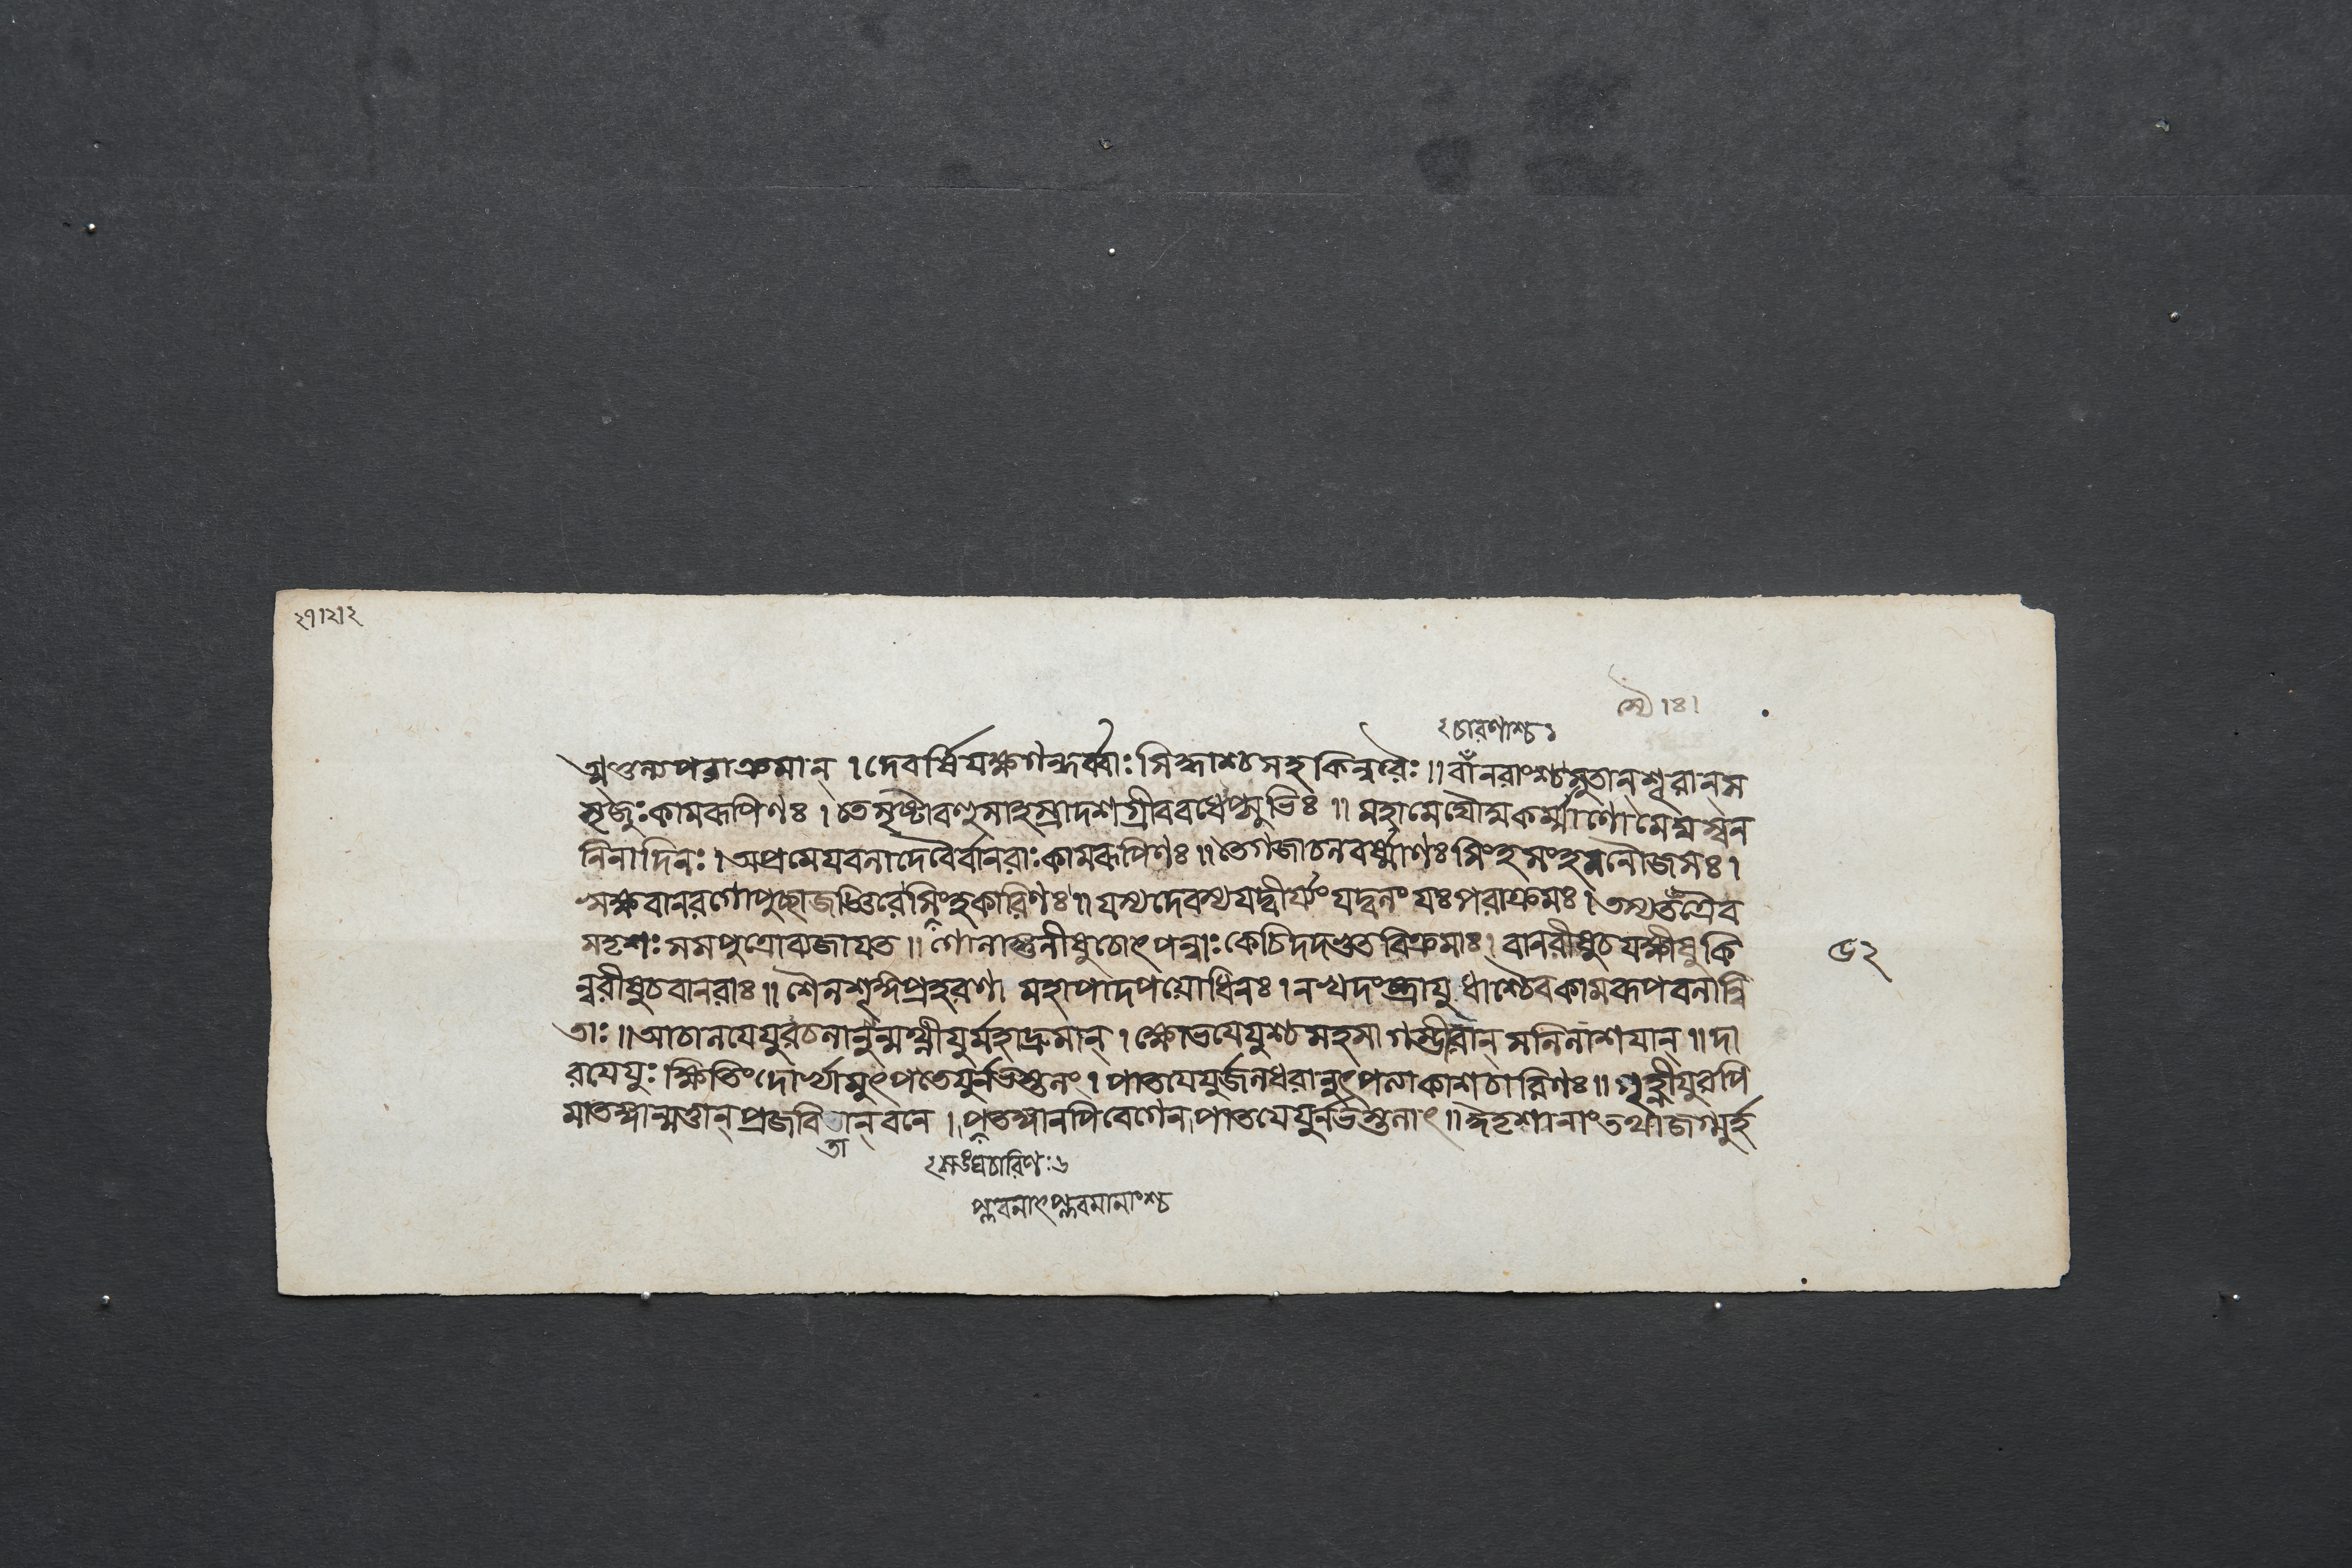 ২১।২।২
চারণাশ্চ১
ত্মতুল্যপরাক্রমান্ । দেবর্ষিযক্ষগন্ধর্ব্বাঃ সিদ্ধাশ্চ সহকিন্নরৈঃ ॥ বানরাংশ্চ সুতান্ শূরান্ স
সৃজুঃ কামরূপিণঃ । তে সৃষ্টা বহুসাহস্রা দশগ্রীববধেপ্সুভিঃ ॥ মহামেঘৌঘকর্ম্মাণো মেঘস্বন
নিনাদিনঃ । অপ্রমেযবলা দেবৈর্বানরাঃ কামরূপিণঃ ॥ তে গজাচলবর্ষ্মাণঃ সিংহসংহননৌজসঃ ।
ঋক্ষবানরগোপুচ্ছা জজ্ঞিরে সিংহকারিণঃ ॥ যস্য দেবস্য যদ্বীর্য্যং যদ্বলং যঃ পরাক্রমঃ । তস্য তত্রৈব
সদৃশঃ সমপুত্রো ব্যজাযত ॥ গোলাঙ্গুলীষু চোৎপন্নাঃ কেচিদদ্ভুতবিক্রমাঃ । বানরীষু চ যক্ষীষু কি
৫২
ন্নরীষু চ বানরাঃ ॥ শৈলশৃঙ্গপ্রহরণা মহাপাদপযোধিনঃ । নখদংষ্ট্রাযুধাশ্চৈব কামরূপবলান্বি
তাঃ ॥ আচালযেযুরচলানুন্মথ্নীযুর্মহাদ্রুমান্ । ক্ষোভযেযুশ্চ সহসা গম্ভীরান্ সলিলাশযান্ ॥ দা
রযেযুঃ ক্ষিতিং দোর্ভ্যামুৎপতেযুর্নভস্তলং । পাতযেযুর্জলধরানুৎপত্যাকাশচারিণঃ ॥ গৃহ্ণীযুরপি
মাতঙ্গান্মত্তান্ প্রজবিতান্ বনে । পতঙ্গানপি বেগেন পাতযেযুর্নভস্তলাৎ ॥ ঈদৃশানাং তথা জগ্মুর্হ
তা
প্লবনাৎপ্লবমানাংশ্চ